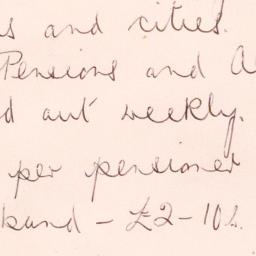 s and cities.
Pensions and A
d out weekly.
per pensioner
band - £2-10s.